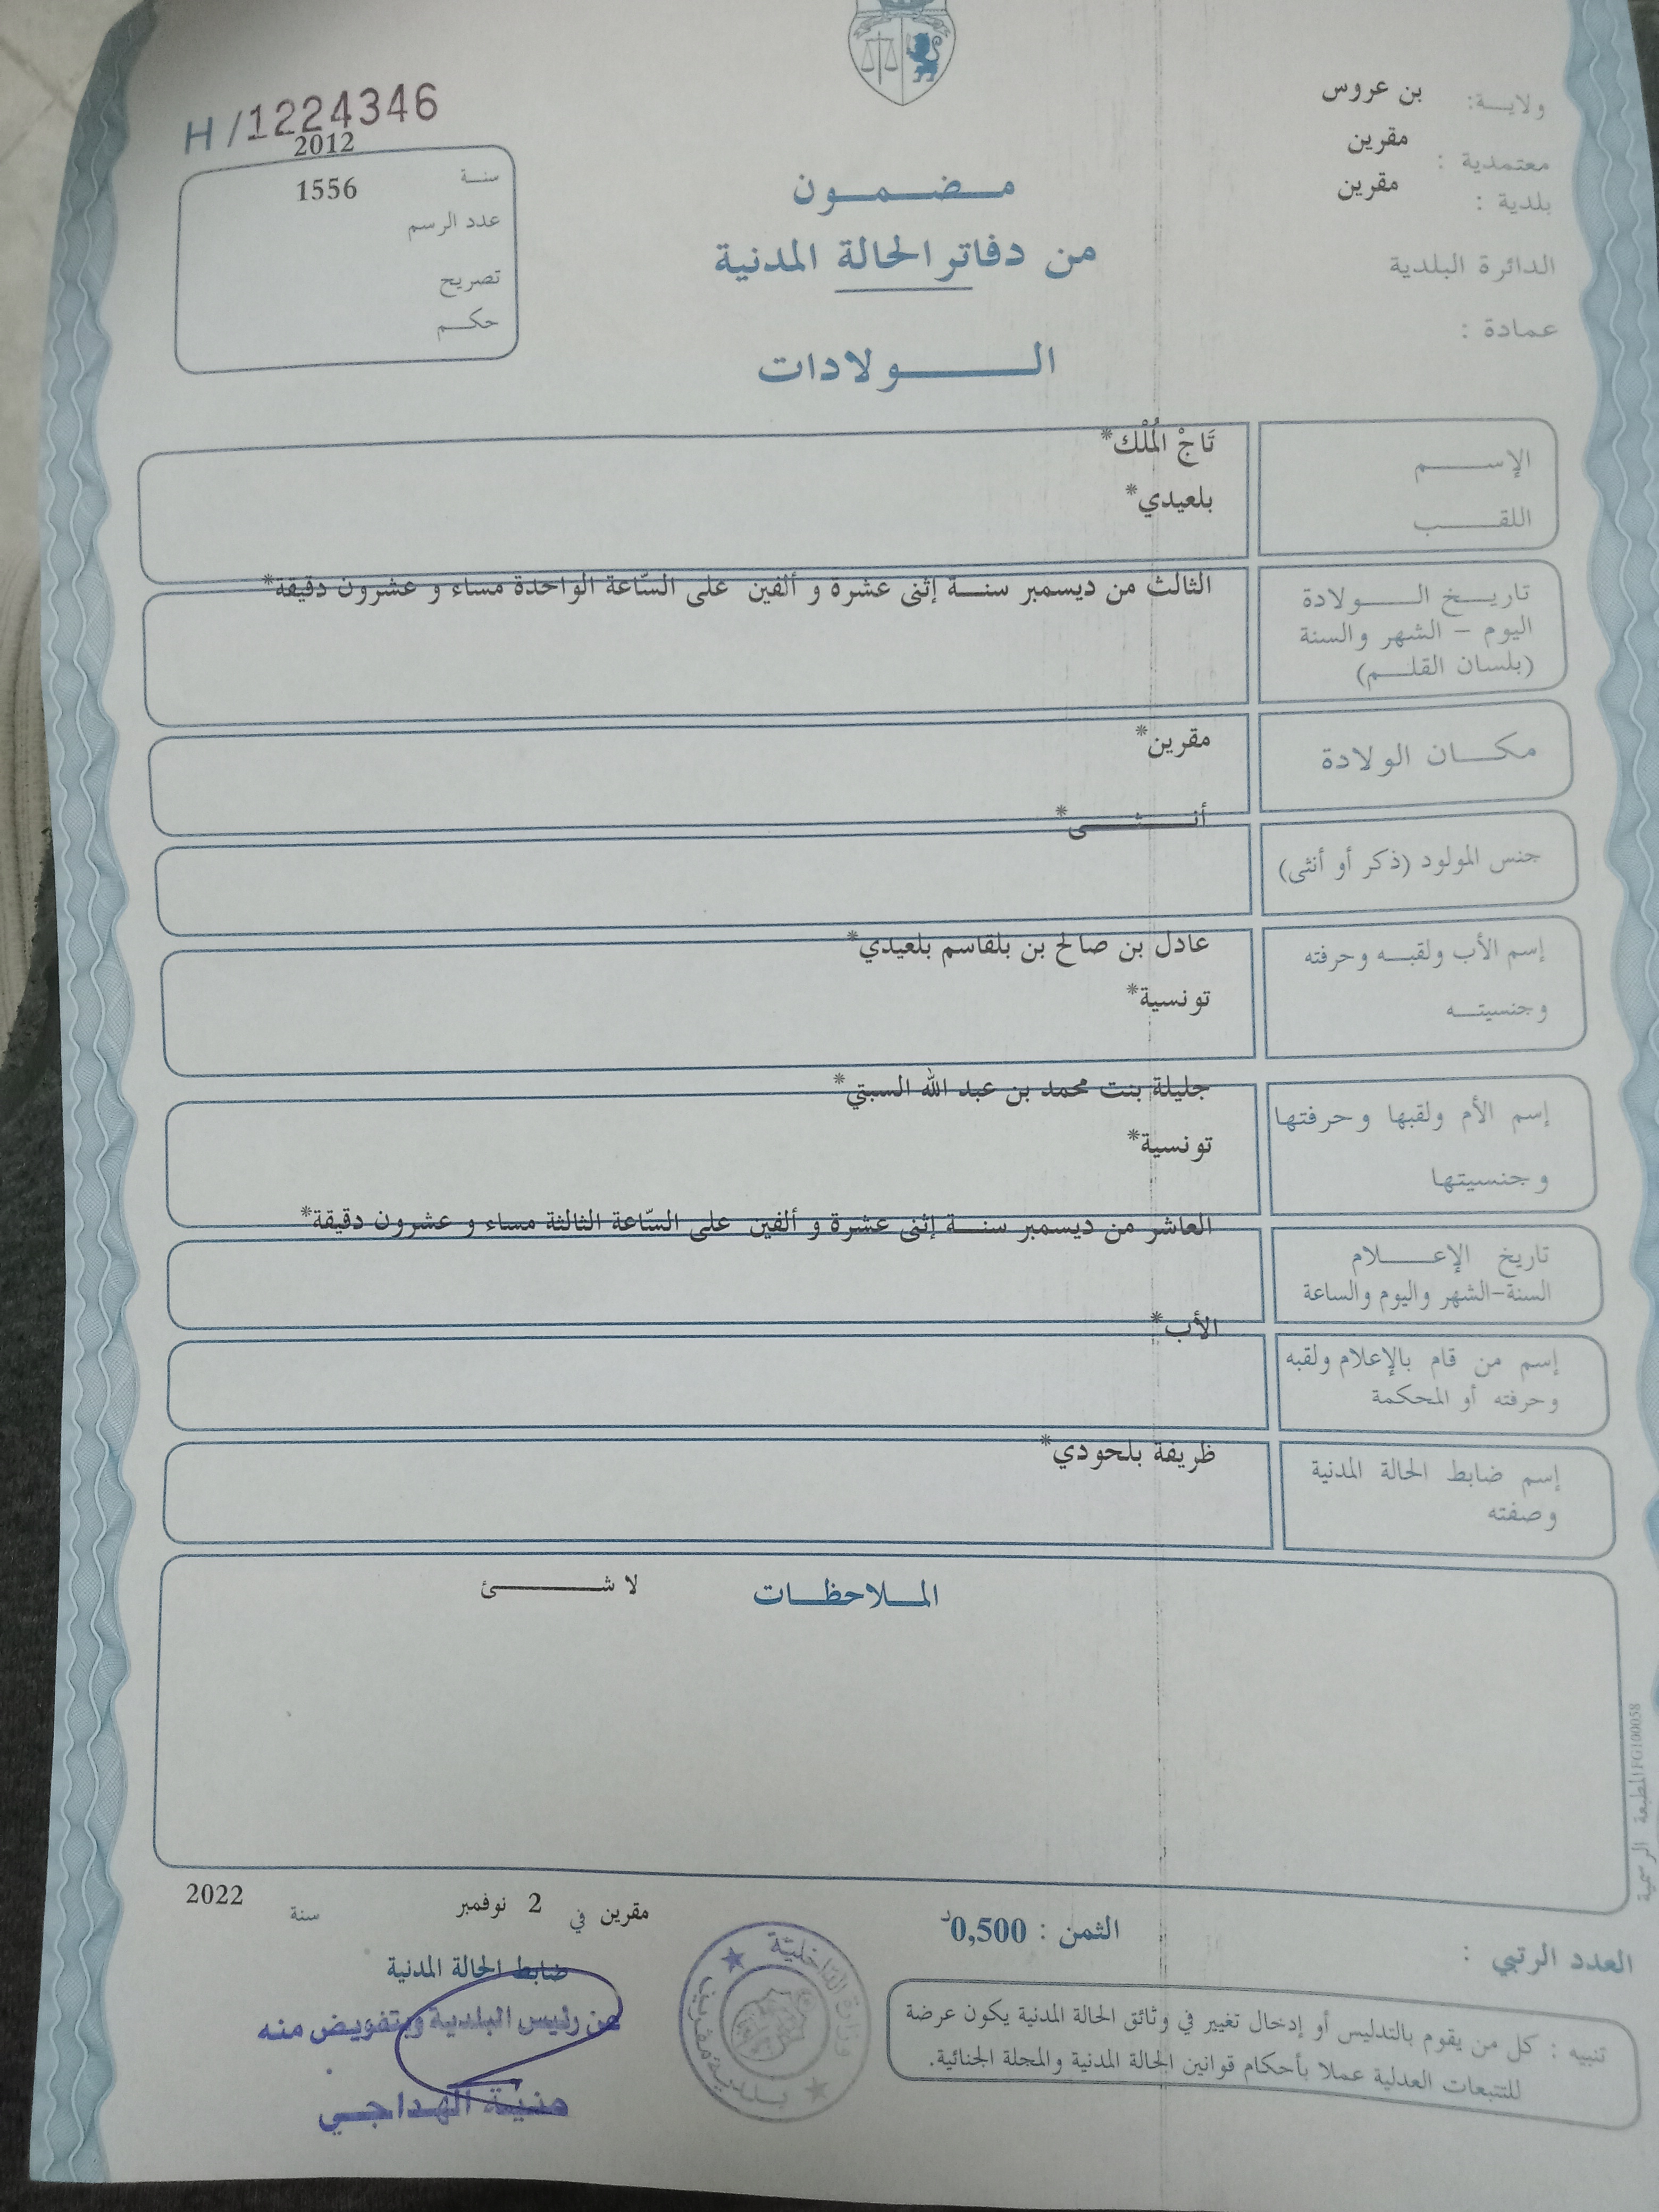 ولاية: بن عروس
معتمدية : مقرين
بلدية : مقرين
الدائرة البلدية
عمادة :
H/1224346
سنة 2012
عدد الرسم 1556
تصريح
حكم
مضمون
من دفاتر الحالة المدنية
الولادات
الإسم تَاجْ الُمْلْك*
اللقب بلعيدي*
تاريخ الولادة
اليوم - الشهر والسنة
(بلسان القلم)
الثالث من ديسمبر سنة إثنى عشرة و ألفين على السّاعة الواحدة مساء و عشرون دقيقة*
مكان الولادة مقرين*
جنس المولود (ذكر أو أنثى) أنثى*
إسم الأب ولقبه وحرفته
وجنسيته
عادل بن صالح بن بلقاسم بلعيدي*
تونسية*
إسم الأم ولقبها وحرفتها
وجنسيتها
جليلة بنت محمد بن عبد الله السبتي*
تونسية*
تاريخ الإعلام
السنة-الشهر واليوم والساعة
العاشر من ديسمبر سنة إثنى عشرة و ألفين على السّاعة الثالثة مساء و عشرون دقيقة*
إسم من قام بالإعلام ولقبه
وحرفته أو المحكمة
الأب*
إسم ضابط الحالة المدنية
وصفته
ظريفة بلحودي*
الملاحظات لا شئ
المطبعة الرسمية FG100058
مقرين في 2 نوفمبر سنة 2022
ضابط الحالة المدنية
عن رئيس البلدية وبتفويض منه
منية الهداجي
وزارة الداخلية
بلدية مقرين
الثمن : 0,500د
العدد الرتبي :
تنبيه : كل من يقوم بالتدليس أو إدخال تغيير في وثائق الحالة المدنية يكون عرضة
للتتبعات العدلية عملا بأحكام قوانين الحالة المدنية والمجلة الجنائية.